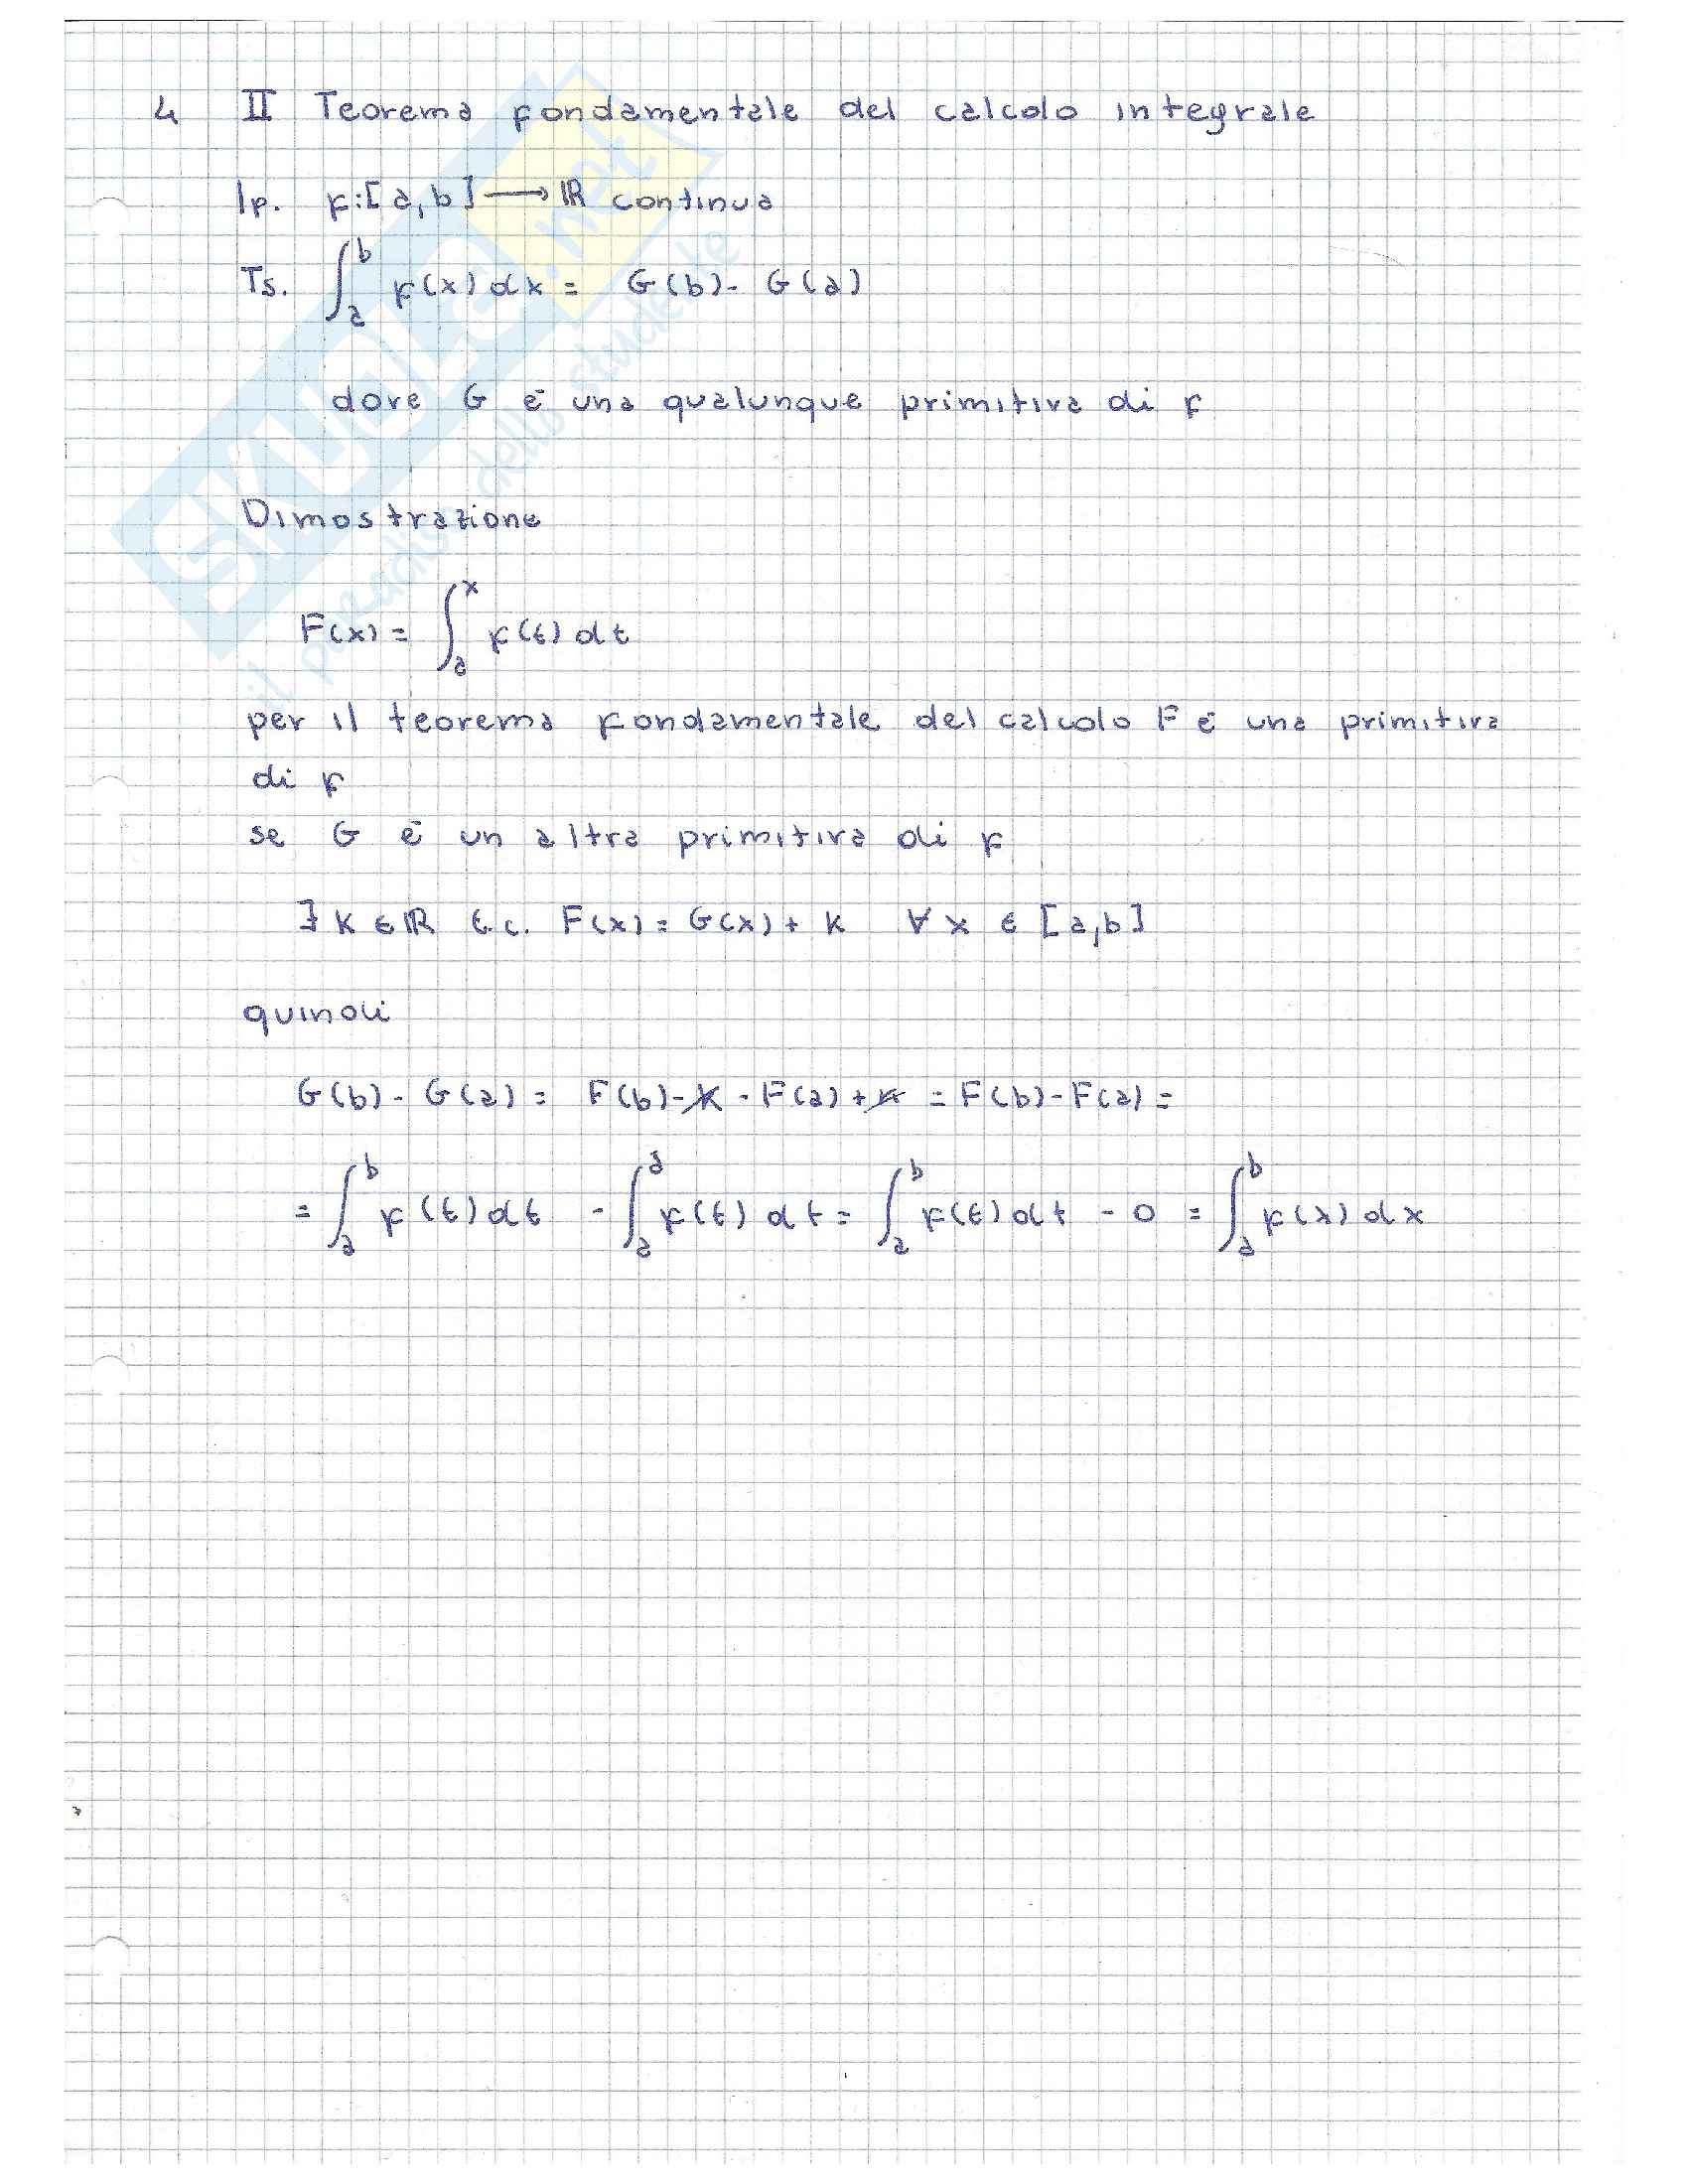 4 II Teorema fondamentale del calcolo integrale
Ip. f:[a,b] ⟶ ℝ continua
Ts. ∫_a^b f(x)dx = G(b)- G(a)
dove G è una qualunque primitiva di f
Dimostrazione
F(x) = ∫_a^x f(t)dt
per il teorema fondamentale del calcolo F è una primitiva
di f
se G è un altra primitiva di f
∃ K ∈ ℝ t.c. F(x) = G(x) + K ∀ x ∈ [a,b]
quindi
G(b) - G(a) = F(b) - K - F(a) + K = F(b) - F(a) =
= ∫_a^b f(t)dt - ∫_a^a f(t)dt = ∫_a^b f(t)dt - 0 = ∫_a^b f(x)dx
SKUOLA.net
il paradiso dello studente